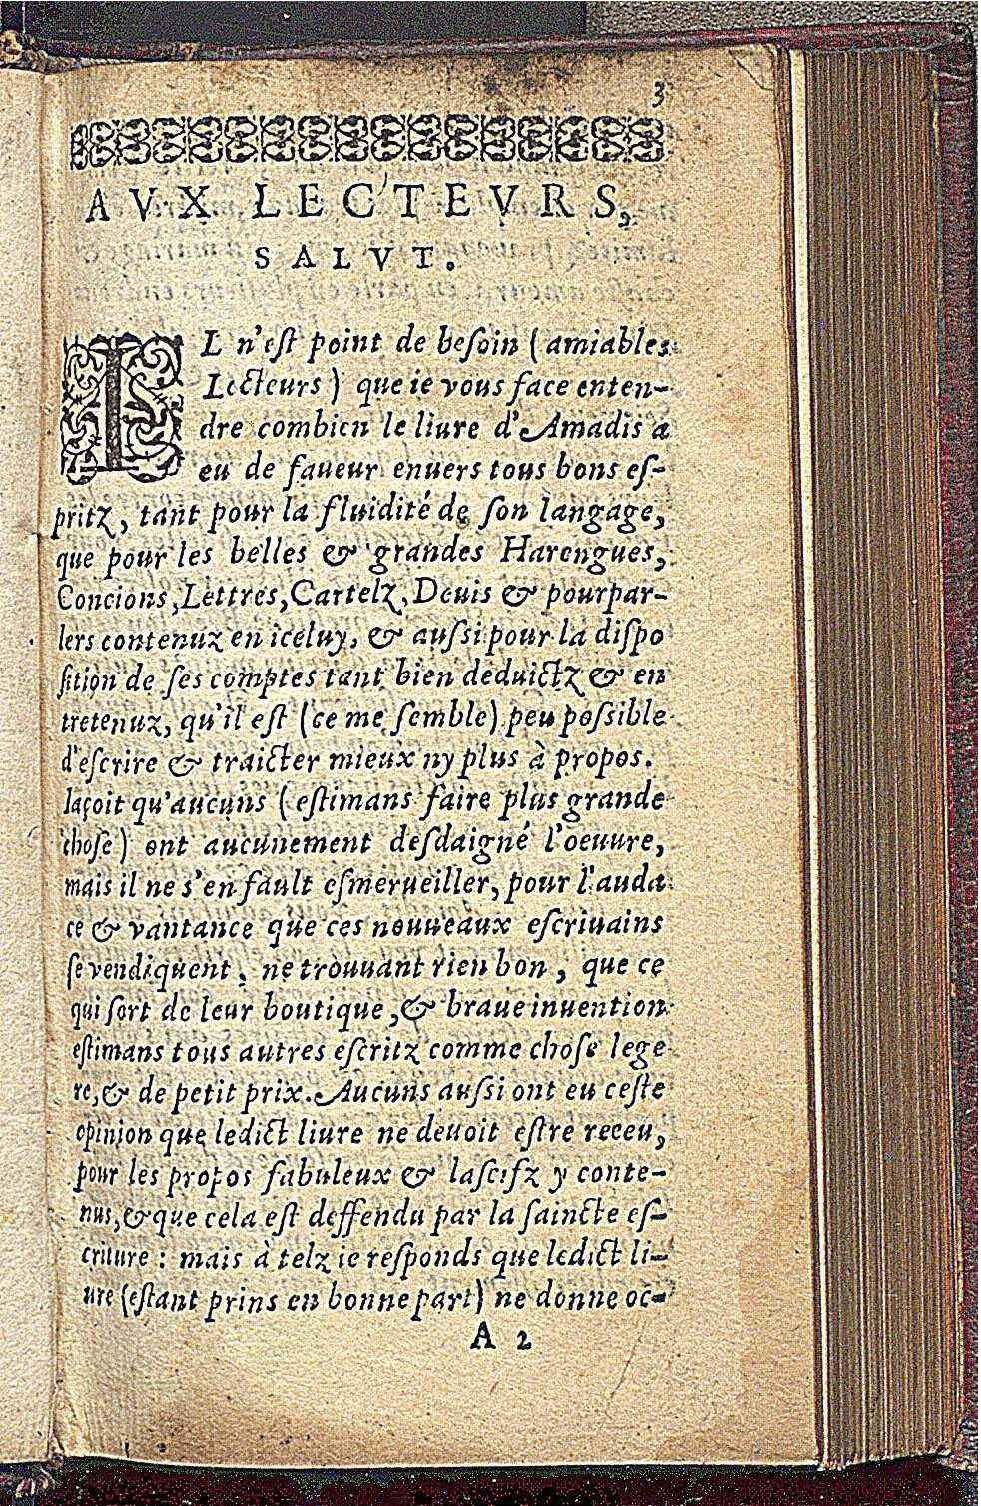 3
AVX LECTEVRS,
SALVT.
IL n'eſt point de beſoin (amiables
Lecteurs) que ie vous face enten-
dre combien le liure d'Amadis a
eu de faueur enuers tous bons eſ-
pritz, tant pour la fluidité de ſon langage,
que pour les belles & grandes Harengues,
Concions, Lettres, Cartelz, Deuis & pourpar-
lers contenuz en iceluy, & auſsi pour la diſpo
ſition de ſes comptes tant bien deduictz & en
tretenuz, qu'il eſt (ce me ſemble) peu poſsible
d'eſcrire & traicter mieux ny plus à propos.
Iaçoit qu'aucuns (eſtimans faire plus grande
choſe) ont aucunement deſdaigné l'oeuure,
mais il ne s'en fault eſmerueiller, pour l'auda
ce & vantance que ces nouueaux eſcriuains
ſe vendiquent, ne trouuant rien bon, que ce
qui ſort de leur boutique, & braue inuention
eſtimans tous autres eſcritz comme choſe lege
re, & de petit prix. Aucuns auſsi ont eu ceſte
opinion que ledict liure ne deuoit eſtre receu,
pour les propos fabuleux & laſcifz y conte-
nus, & que cela eſt deffendu par la ſaincte eſ-
criture : mais à telz ie reſponds que ledict li-
ure (eſtant prins en bonne part) ne donne oc-
A 2